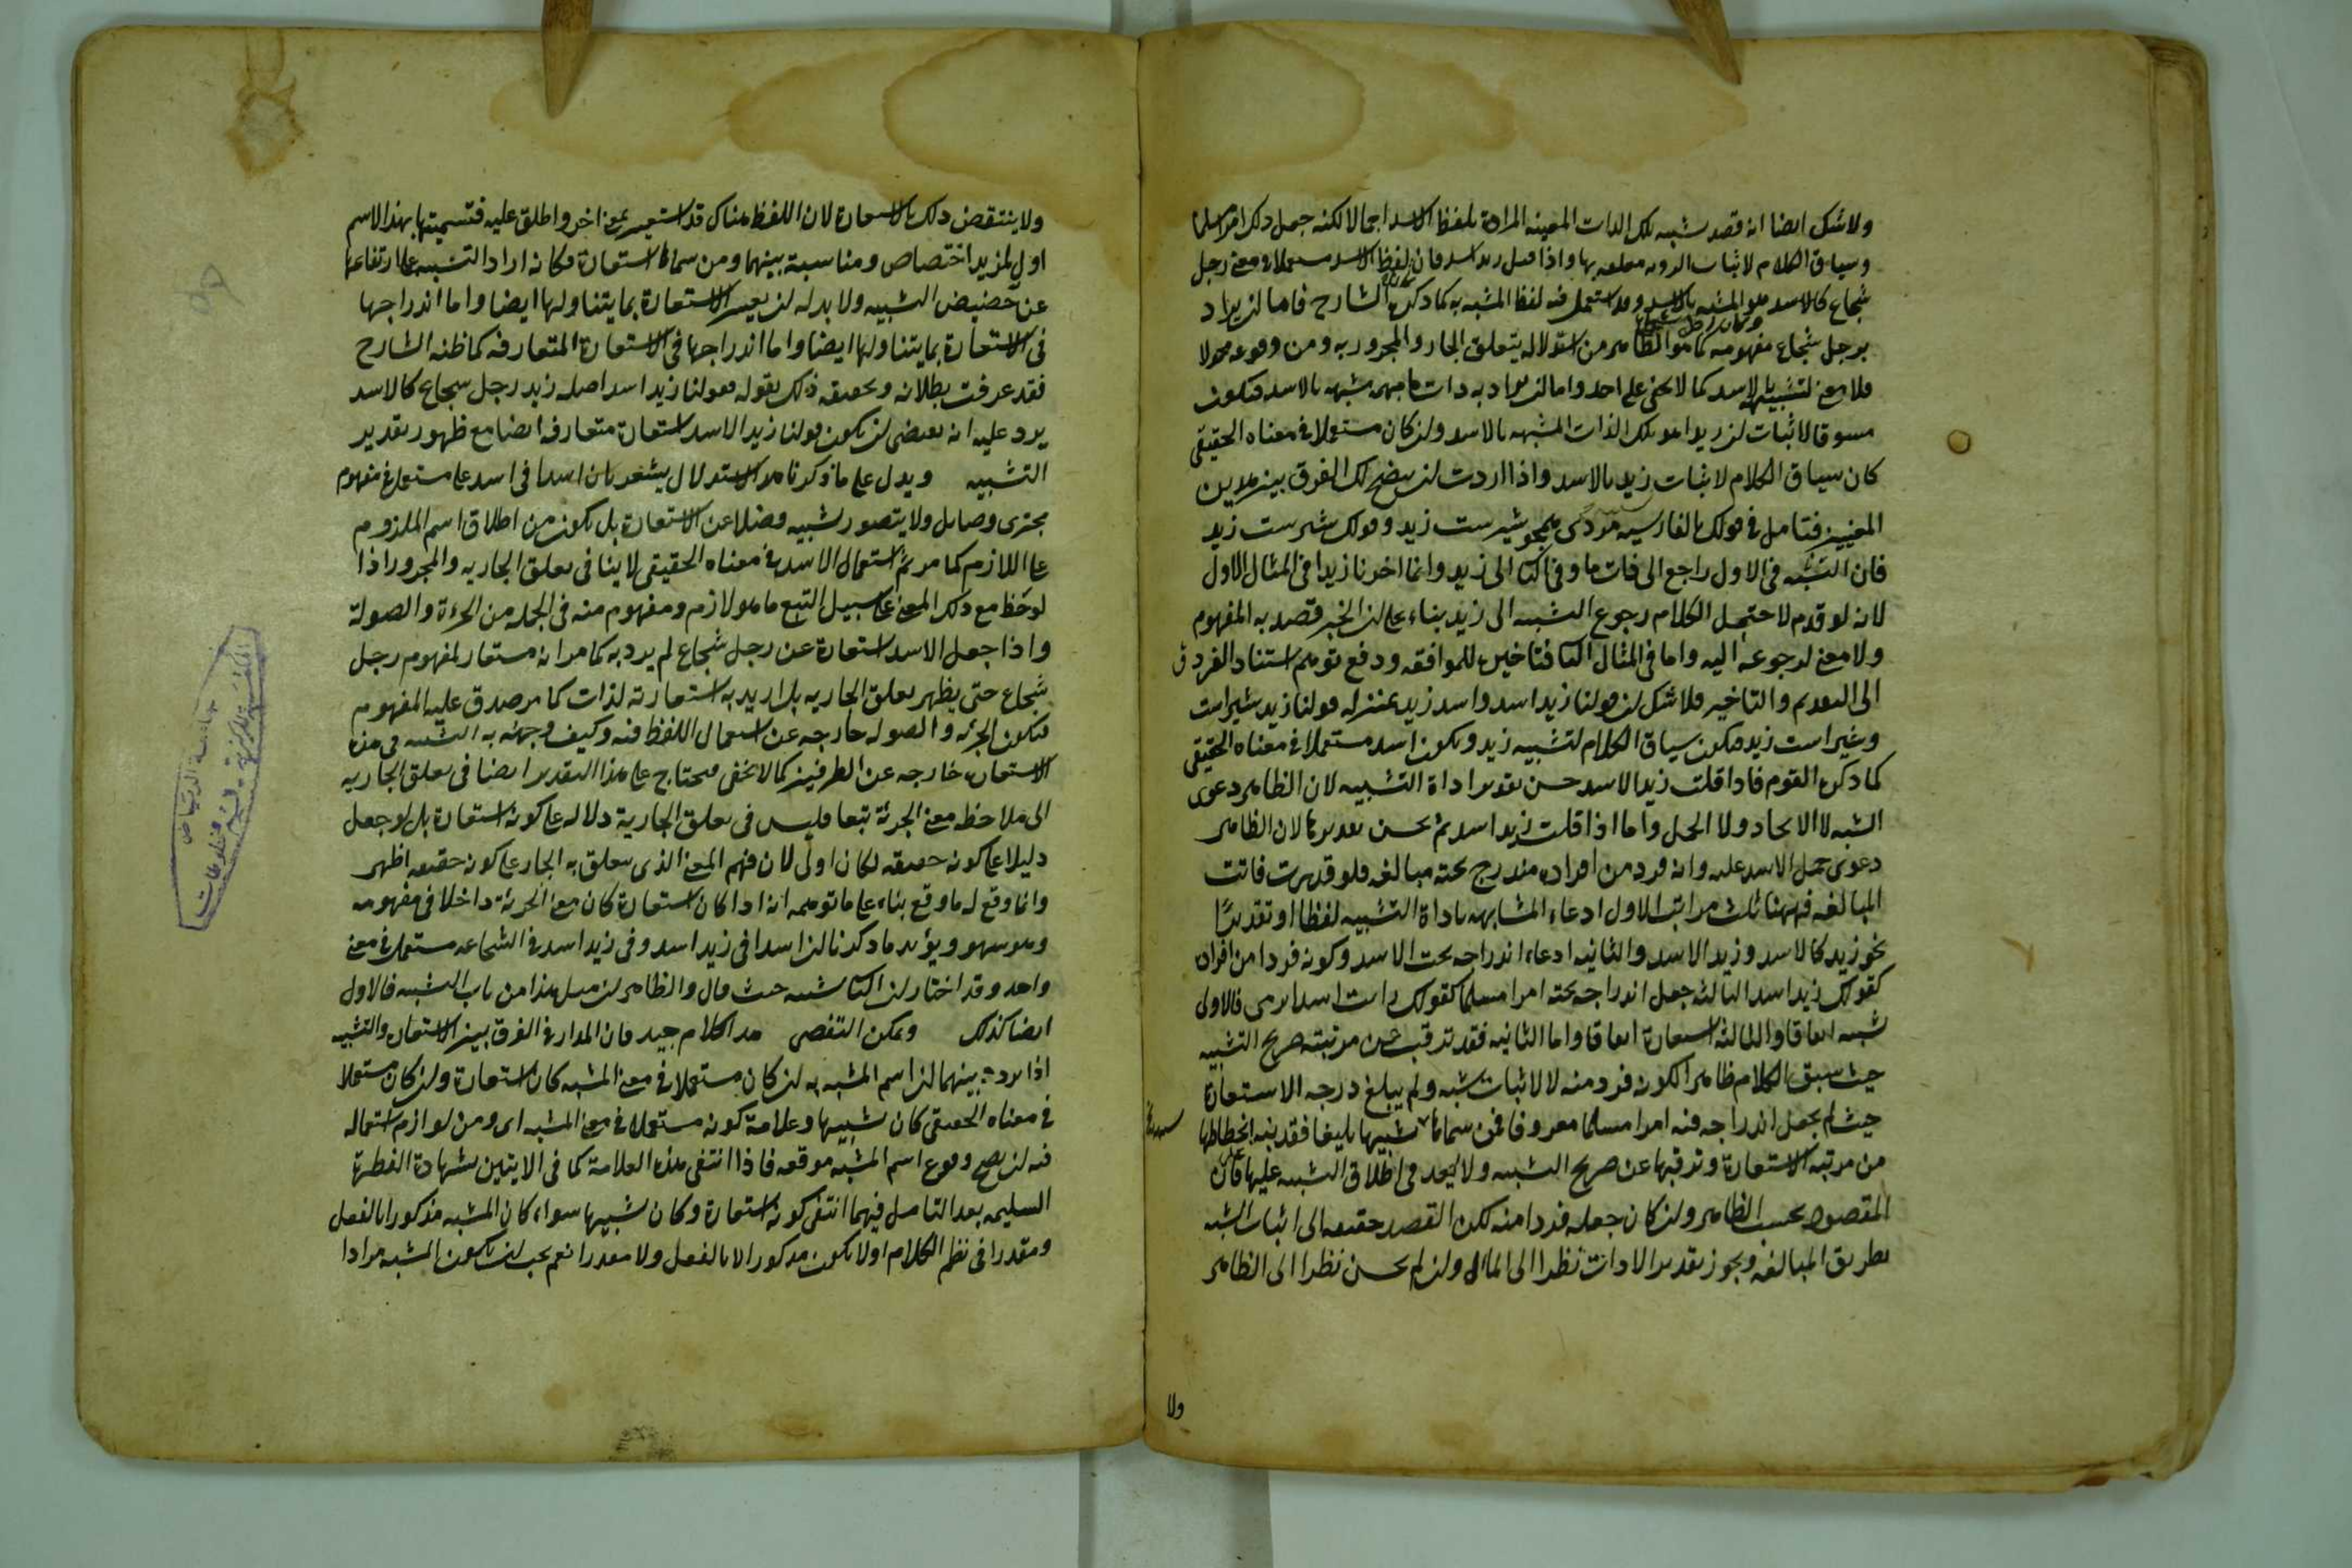 ولا شك ايضا انه قصد تشبيه تلك الذات المعينه المرادة بلفظ الاسد اجمالا لكنه جعل ذلك امرا مسلما
وسياق الكلام لاثبات الرويه متعلقه بها واذا قيل زيد اسد فان لفظ الاسد مستعملا في معنى رجل
شجاع كالاسد هو المشبه بالاسد وقد استعمل فيه لفظ المشبه به كما ذكره الشارح فاما ان يراد
برجل شجاع مفهومه كما هو الظاهر من استدلاله بتعلق الجار والمجرور به ومن وقوعه محمولا
فلا معنى لتشبيهه بالاسد كما لا يخفى على احد واما ان يراد به ذات ما مبهمه مشبهه بالاسد فيكون
مسوقا لاثبات ان زيدا هو تلك الذات المشبهه بالاسد وان كان مستعملا في معناه الحقيقي
كان سياق الكلام لاثبات زيد بالاسد واذا اردت ان يتضح لك الفرق بين هذين
المعنيين فتامل في قولك بالفارسيه مردى همجو شيرست زيد وقولك شيرست زيد
فان التشبيه في الاول راجع الى ذات ما وفي الثا الى زيد وانما اخرنا زيدا في المثال الاول
لانه لو قدم لاحتمل الكلام رجوع التشبيه الى زيد بناء على ان الخبر قصد به المفهوم
ولا معنى لرجوعه اليه واما في المثال الثا فتاخيره للموافقه ودفع توهم استناد الفرق
الى التقديم والتاخير فلا شك ان قولنا زيد اسد واسد زيد بمنزله قولنا زيد شيراست
وشيراست زيد فيكون سياق الكلام لتشبيه زيد ويكون اسد مستعملا في معناه الحقيقي
كما ذكره القوم فاذا قلت زيد الاسد حسن تقدير اداة التشبيه لان الظاهر دعوى
الشبه لا الاتحاد ولا الحمل واما اذا قلت زيد اسد لم يحسن تقديرها لان الظاهر
دعوى حمل الاسد عليه وانه فرد من افراده مندرج تحته مبالغه فلو قدرت فاتت
المبالغه فههنا ثلث مراتب الاول ادعاء المشابهه باداة التشبيه لفظا او تقديرا
نحو زيد كالاسد وزيد الاسد والثانيه ادعاء اندراجه تحت الاسد وكونه فردا من افراده
كقولك زيد اسد الثالثه جعل اندراجه تحته امرا مسلما كقولك رايت اسدا يرمي فالاولى
تشبيه اتفاقا والثالثه استعارة اتفاقا واما الثانيه فقد ترقيت عن مرتبته صريح التشبيه
حيث سبق الكلام ظاهرا لكونه فرد منه لا لاثبات شبه ولم يبلغ درجه الاستعارة
حيث لم يجعل اندراجه فيه امرا مسلما معروفا فمن سماها تشبيها بليغا فقد نبه انحطاطها
من مرتبه الاستعارة وترقيها عن صريح التشبيه ولا يبعد في اطلاق التشبيه عليها فان
المقصود بحسب الظاهر وان كان جعله فردا منه لكن القصد حقيقه الى اثبات الشبه
بطريق المبالغه ويجوز تقدير الادات نظرا الى المال وان لم يحسن نظرا الى الظاهر
ولا
ولا ينتقض ذلك بالاستعارة لان اللفظ هناك قد استعير بمعنى اخر واطلق عليه فتسميتها بهذا الاسم
اولى لمزيد اختصاص ومناسبة بينهما ومن سماها استعارة فكانه اراد التنبيه على ارتفاعها
عن حضيض التشبيه ولا بد له ان يفسر الاستعارة بما يتناولها ايضا واما اندراجها
في الاستعارة بما يتناولها ايضا واما اندراجها في الاستعارة المتعارفه كما ظنه الشارح
فقد عرفت بطلانه وتحقيقه ذلك بقوله فقولنا زيد اسد اصله زيد رجل شجاع كالاسد
يرد عليه انه يقتضي ان يكون قولنا زيد الاسد استعارة متعارفه ايضا مع ظهور تقدير
التشبيه ويدل على ما ذكرنا هذا الاستدلال يشعر بان اسدا في اسد على مستعمل في مفهوم
مجترى وصائل ولا يتصور تشبيه فضلا عن الاستعارة بل يكون من اطلاق اسم الملزوم
على اللازم كما مر ثم استعمال الاسد في معناه الحقيقي لا ينافي تعلق الجار به والمجرور اذا
لوحظ مع ذلك المعنى على سبيل التبع ما هو لازم ومفهوم منه في الجمله من الجرءة والصولة
واذا جعل الاسد استعارة عن رجل شجاع لم يرد به كما مر انه مستعار لمفهوم رجل
شجاع حتى يظهر تعلق الجار به بل اريد به استعارته لذات كما مر صدق عليه المفهوم
فتكون الجرئه والصوله خارجه عن استعمال اللفظ فيه وكيف ووجهه به التشبيه في هذه
الاستعاره خارجه عن الطرفين كما لا يخفى فيحتاج على هذا التقدير ايضا في تعلق الجار به
الى ملاحظه معنى الجرئة تبعا فليس في تعلق الجار به دلاله على كونه استعارة بل لو جعل
دليلا على كونه حقيقه لكان اولى لان فهم المعنى الذي يتعلق به الجار على كونه حقيقه اظهر
وانما وقع له ما وقع بناء على ما توهمه انه اذا كان استعارة كان معنى الجرئة داخلا في مفهومه
وهو سهو ويؤيد ما ذكرنا ان اسدا في زيد اسد وفي زيد اسد في الشجاعه مستعمل في معنى
واحد وقد اختار ان الثا تشبيه حيث قال والظاهر ان مثل هذا من باب التشبيه فالاول
ايضا كذلك ويمكن التفصى هذا كلام جيد فان المدار في الفرق بين الاستعارة والتشبيه
اذا تردد بينهما ان اسم المشبه به ان كان مستعملا في معنى المشبه كان استعارة وان كان مستعملا
في معناه الحقيقي كان تشبيها وعلامة كونه مستعملا في معنى المشبه اى ومن لوازم استعماله
فيه ان يصح وقوع اسم المشبه موقعه فاذا انتفى هذه العلامة كما في الايتين بشهادة الفطرة
السليمه بعد التامل فيهما انتفى كونه استعارة وكان تشبيها سواء كان المشبه مذكورا بالفعل
ومقدرا في نظم الكلام اولا يكون مذكورا لا بالفعل ولا مقدرا نعم يجب ان يكون المشبه مرادا
جامعة الرياض